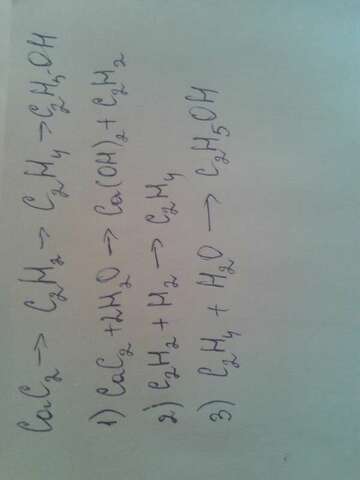 CaC₂ → C₂H₂ → C₂H₄ → C₂H₅-OH
1) CaC₂ + 2H₂O → Ca(OH)₂ + C₂H₂
2) C₂H₂ + H₂ → C₂H₄
3) C₂H₄ + H₂O → C₂H₅OH